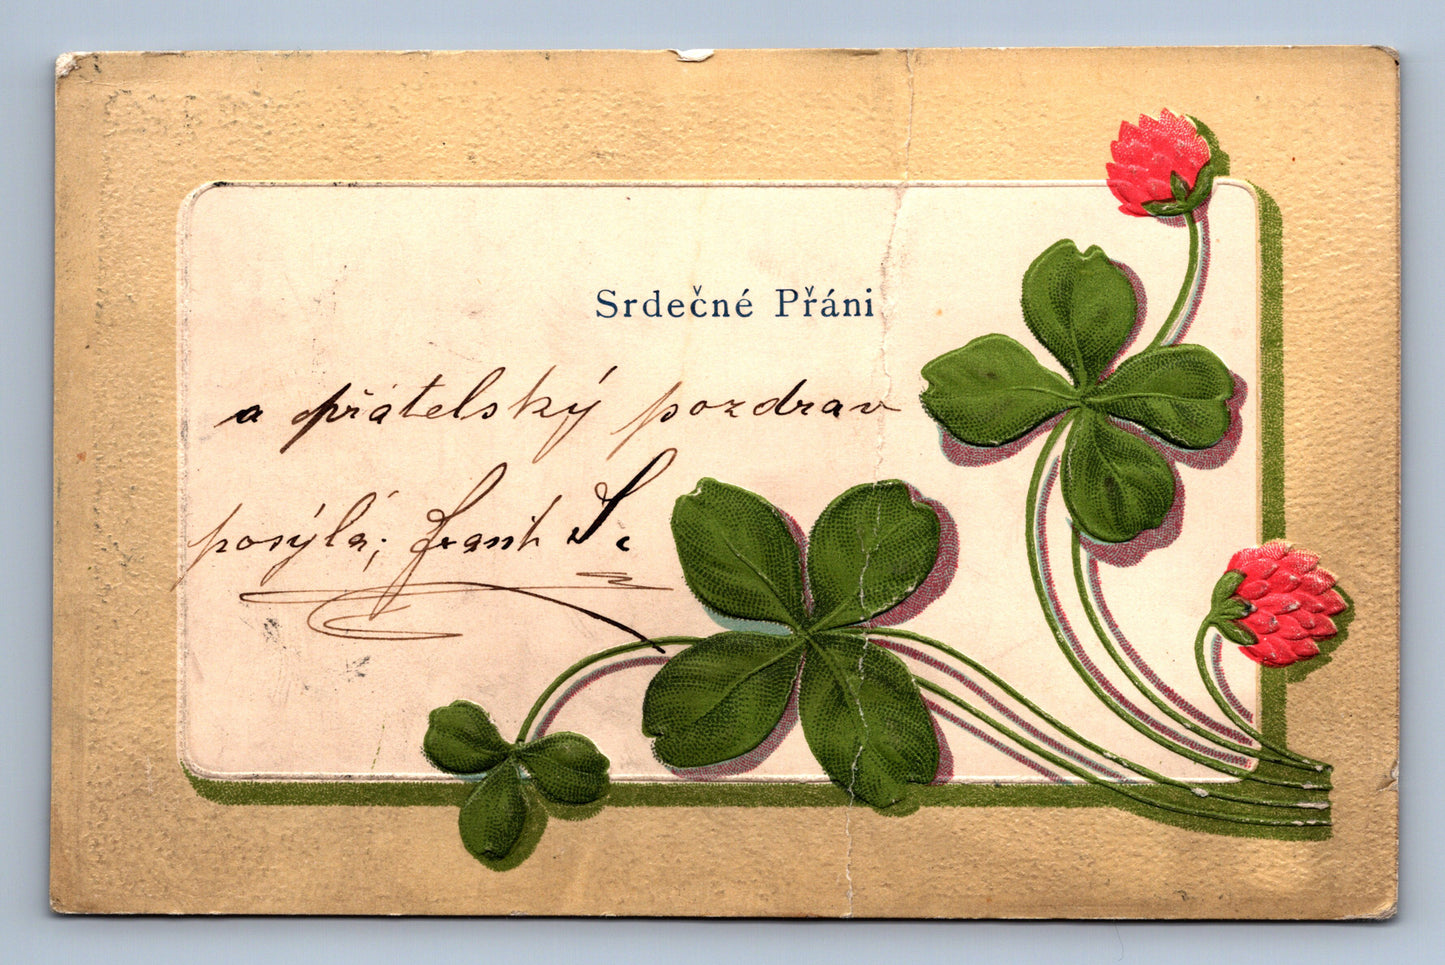 Srdečné Přáni
a přátelský pozdrav
posýlá; Frant S.